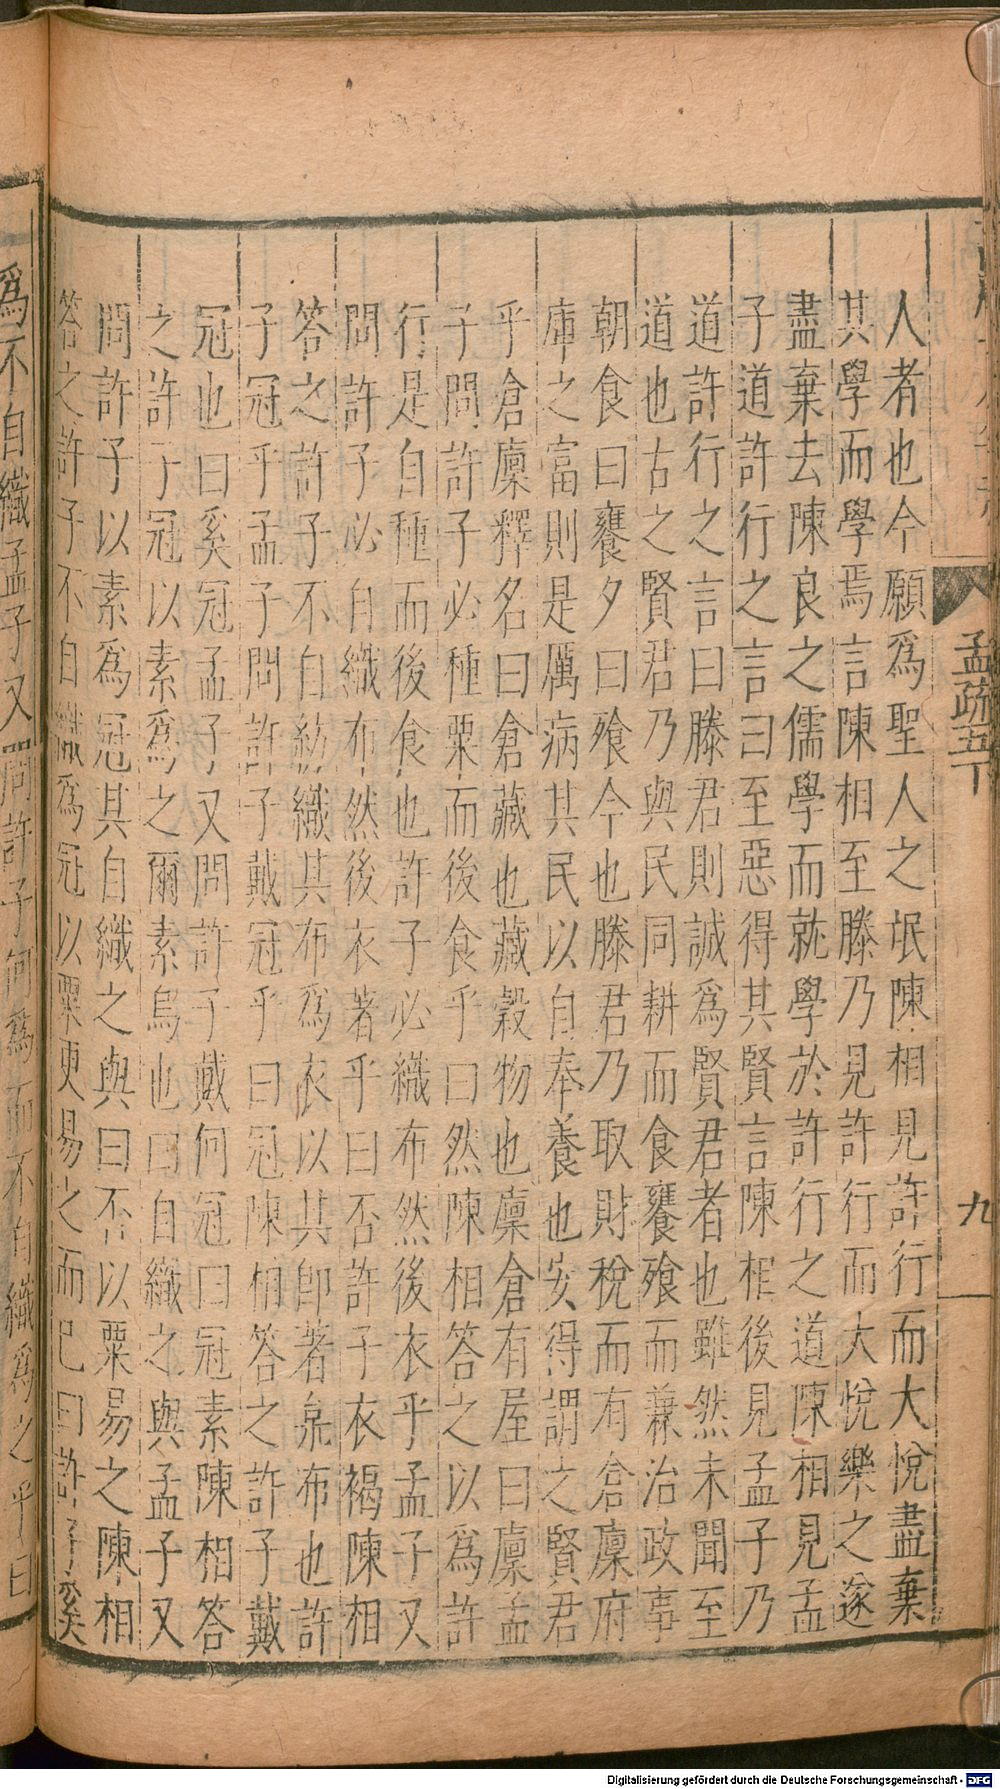 人者也今願爲聖人之氓陳相見許行而大悅盡棄
其學而學焉言陳相至滕乃見許行而大悅樂之遂
盡棄去陳良之儒學而就學於許行之道陳相見孟
子道許行之言曰至惡得其賢言陳相後見孟子乃
道許行之言曰滕君則誠爲賢君者也雖然未聞至
道也古之賢君乃與民同耕而食饔飧而兼治政事
朝食曰饔夕曰飧今也滕君乃取財稅而有倉廩府
庫之富則是厲病其民以自奉養也安得謂之賢君
乎倉廩釋名曰倉藏也藏穀物也廩倉有屋曰廩孟
子問許子必種粟而後食乎曰然陳相答之以爲許
行是自種而後食也許子必織布然後衣乎孟子又
問許子必自織布然後衣著乎曰否許子衣褐陳相
答之許子不自紡織其布爲衣以其卽著枲布也許
子冠乎孟子問許子戴冠乎曰冠陳相答之許子戴
冠也曰奚冠孟子又問許子戴何冠曰冠素陳相答
之許子冠以素爲之爾素烏也曰自織之與孟子又
問許子以素爲冠其自織之與曰否以粟易之陳相
答之許子不自織爲冠以粟更易之而已曰許子奚
爲不自織孟子又問許子何爲而不自織爲之乎曰
孟疏五下
九
Digitalisierung gefördert durch die Deutsche Forschungsgemeinschaft - DFG